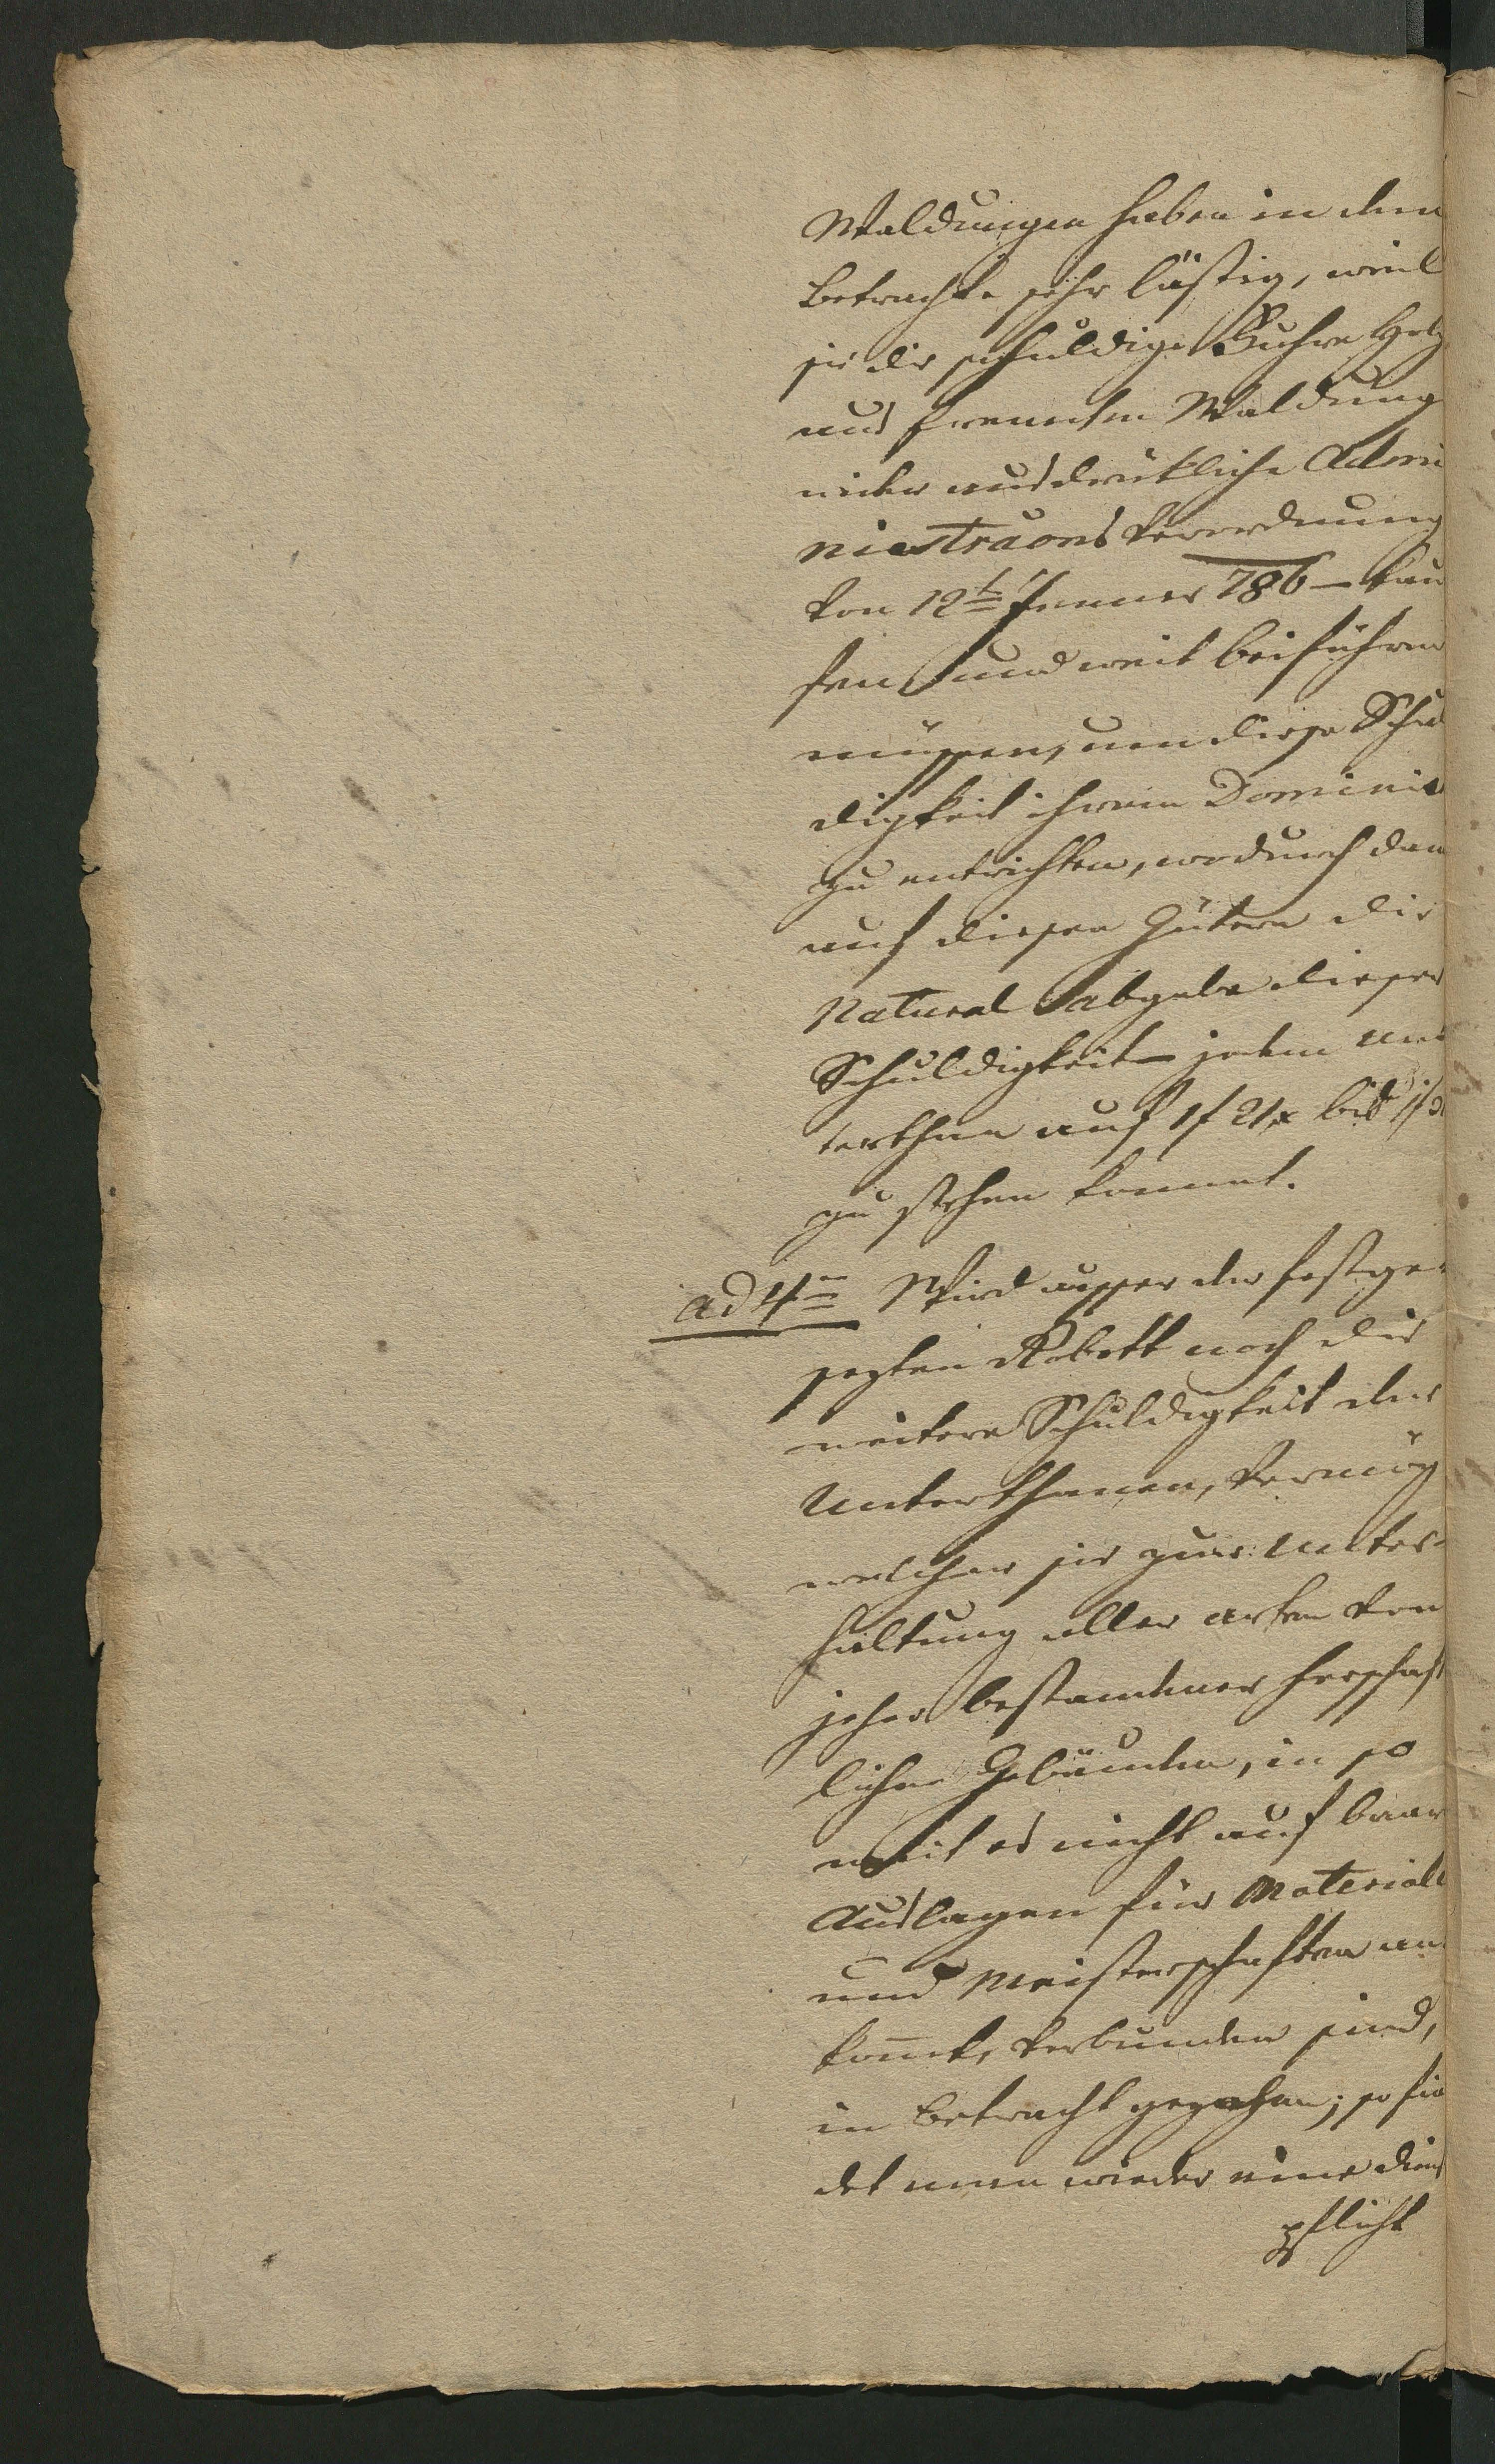 Waldungen haben in dem
Betrachte sehr lästig, weil
sie die schuldige Fuhre Holz
aus fremden Waldung
wider ausdrükliche Admi
nistraons Verordnung
von 12t Jenner 786 – kau
fen und weit beiführen
müssen, um diese Schul
digkeit ihrem Dominio
zu entrichten, wodurch dan
auf diesen Gütern die
Natural Abgabe dieser
Schuldigkeit jedem Un
terthan auf 1f 21x bis 1f
zu stehen kommt.
ad 4m Wird ausser der festge-
sezten Robott noch die
weitere Schuldigkeit der
Unterthanen, Vermög
welcher sie zur Unter-
haltung aller Arten von
jeher bestandener herschaft
lichen Gebäuden, in so
weit es nicht auf baar
Auslagen für Material
und Meisterschaften an
kom̄t, verbunden sind,
in Betracht gezohen; so fin
det man wieder eine Dienst
pflicht